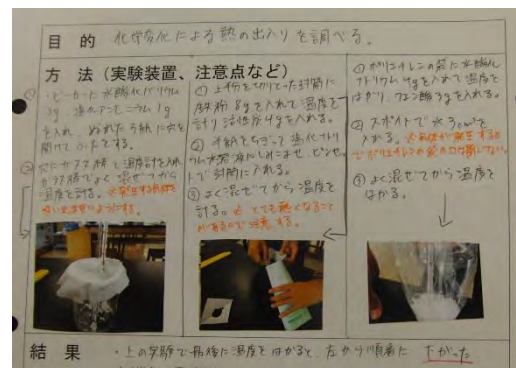 目 的 化学変化による熱の出入りを調べる。
方 法（実験装置、注意点など）
①・ビーカーに水酸化バリウム
3g、塩化アンモニウム1g
を入れ、ぬれたろ紙に穴を
開けてふたをする。
②穴にガラス棒と温度計を入れ
ガラス棒でよく混ぜてから
温度を計る。※発生する気体を
吸い込まないようにする。
① 上部を切りとった封筒に
鉄粉8gを入れて温度を
計り活性炭4gを入れる。
② 半紙をちぎって塩化ナトリ
ウム水溶液にしみこませ、ピンセッ
トで封筒に入れる。
③ よく混ぜてから温度を
計る。※とても熱くなること
があるので注意する。
① ポリエチレンの袋に水酸化
ナトリウム 4gを入れて温度を
はかり、クエン酸3gを入れる。
② スポイトで水3cm³を
入れる。※気体が発生する
のでポリエチレンの袋の口は閉じない。
③ よく混ぜてから温度を
はかる。
結 果 ・上の実験で最後に温度をはかると、左から順番に 下がった